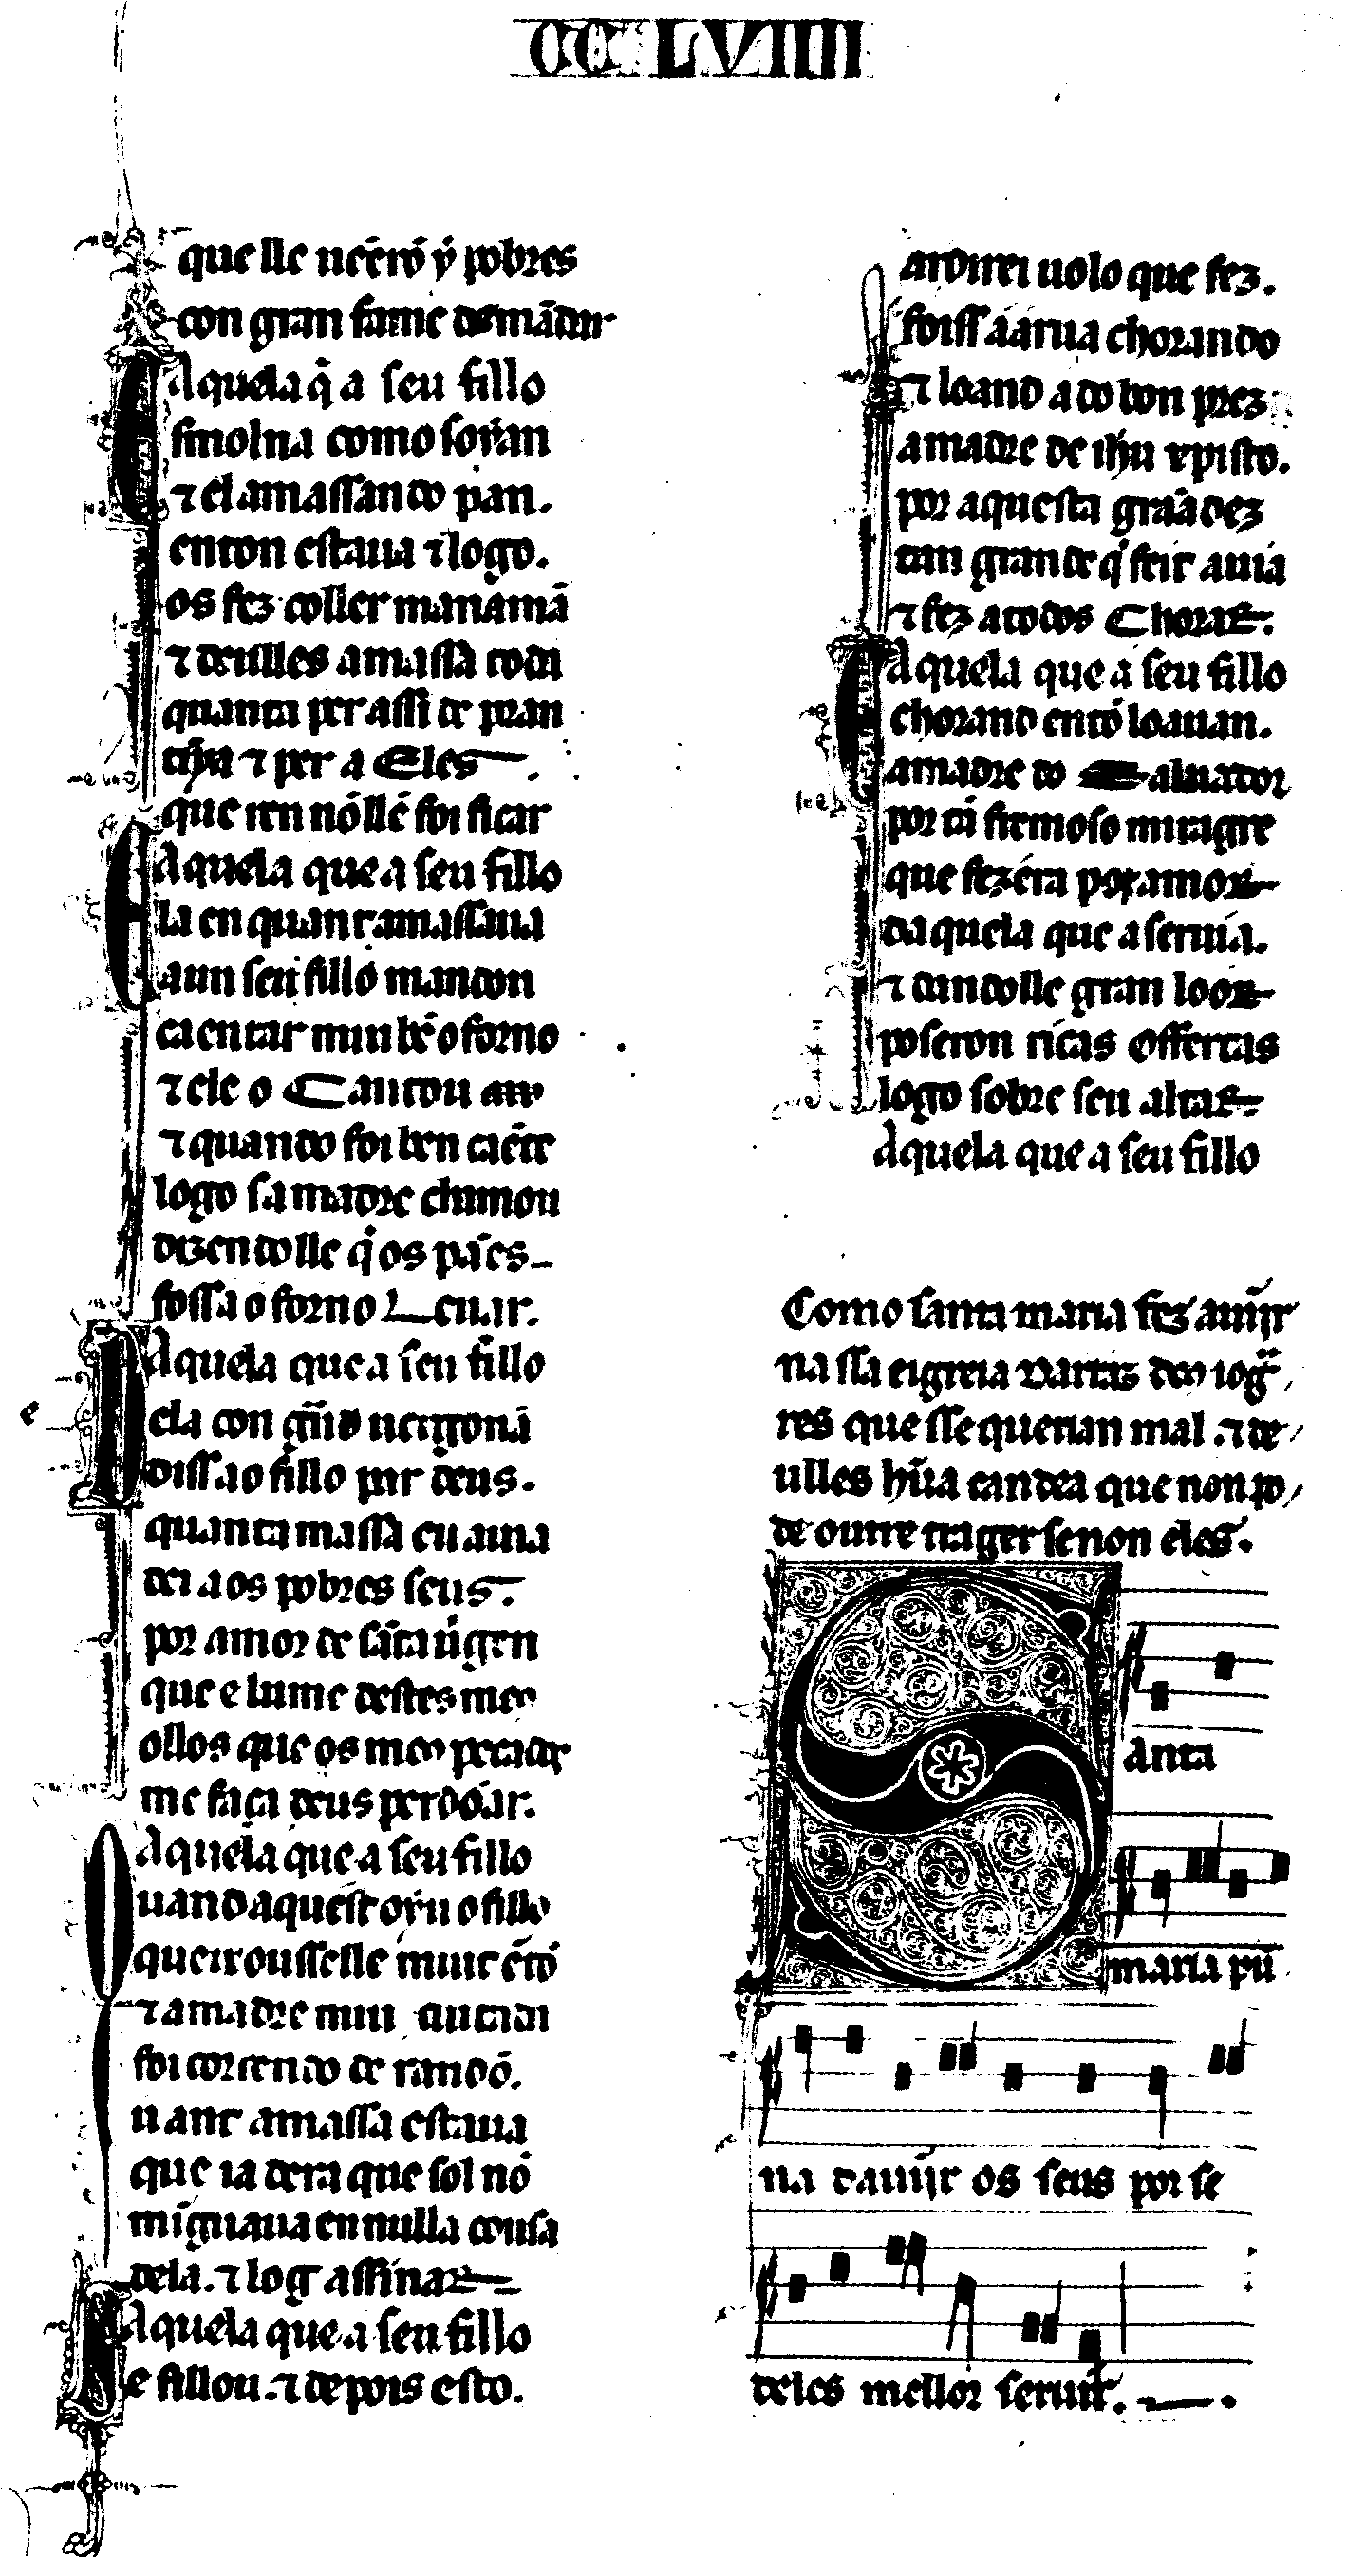 CCLVIIII
que lle uēērō ẏ pobres
con gran fame demādar
Aquela q̇ a seu fillo
Esmolna como soyan
⁊ el amassando pan.
enton estaua ⁊ logo.
os fez coller manamā
⁊ deulles a massa toda
quanta per assi de pran
tij̃na ⁊ per a Eles.
que ren nō llē foi ficar
Aquela que a seu fillo
Ela en quant amassaua
aun seu fillo mandou
caentar mui bē o forno
⁊ ele o Cantou
⁊ quando foi ben caēte
logo sa madre chamou
dizendolle q̇ os pāes
fossa o forno Leuar.
Aquela que a seu fillo
Ela con gn̄d uergonā
dissa o fillo par deus.
quanta massa eu auia
dei aos pobres seus.
por amor de sāta uirgen
que e lume destes meos
ollos que os meos pecados
me faça deus perdōar.
Aquela que a seu fillo
Quand aquest oyu o fillo
queixousselle muit ētō
⁊ a madre mui cuitada
foi correndo de randō.
u ant a massa estaua
que ia dera que sol nō
mīguaua en nulla cousa
dela. ⁊ log assinar
Aquela que a seu fillo
e fillou. ⁊ depois esto.
ardirei uolo que fez.
foiss aa rua chorando
⁊ loand a do bon prez
a madre de ihū xpisto.
por aquesta graādez
tan grande q̇ feit auia
⁊ fez a todos Chorar.
Aquela que a seu fillo
Chorand entō loauan.
a madre do Saluador
por tā fremoso miragre
que fezera por amor
daquela que a seruia.
⁊ dandolle gran loor
poseron ricas Offertas
logo sobre seu altar
Aquela que a seu fillo
Como santa maria fez auĩjr
na ssa eigreia Darraz deos iogra
res que sse querian mal. ⁊ de
ulles hũa candea que non po
de outre trager senon eles.
Santa
maria pũ
na d auĩjr os seus por se
deles mellor seruir.